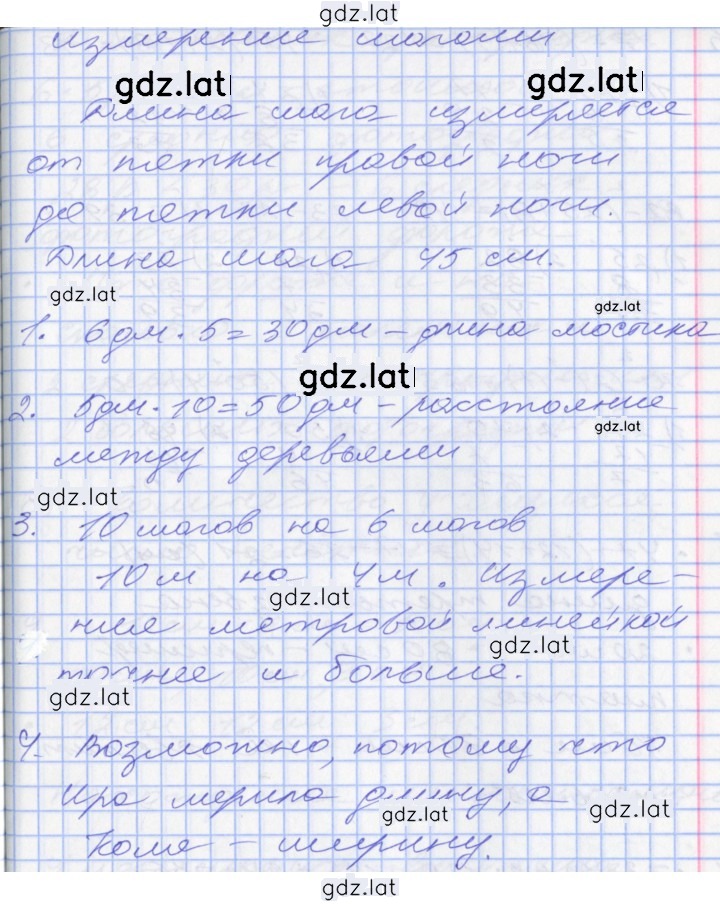 gdz.lat
измерение шагами
gdz.lat gdz.lat
Длина шага измеряется
от пятки правой ноги
до пятки левой ноги.
Длина шага 45 см.
gdz.lat gdz.lat
1. 6дм · 5 = 30дм – длина мостика
gdz.lat
2. 5дм · 10 = 50дм – расстояние
gdz.lat
между деревьями
gdz.lat
3. 10 шагов на 6 шагов
10м на 4м. Измере-
gdz.lat
ния метровой линейкой
gdz.lat
точнее и больше.
gdz.lat
4. Возможно, потому что
Ира мерила длину, а
gdz.lat gdz.lat
Коля – ширину.
gdz.lat